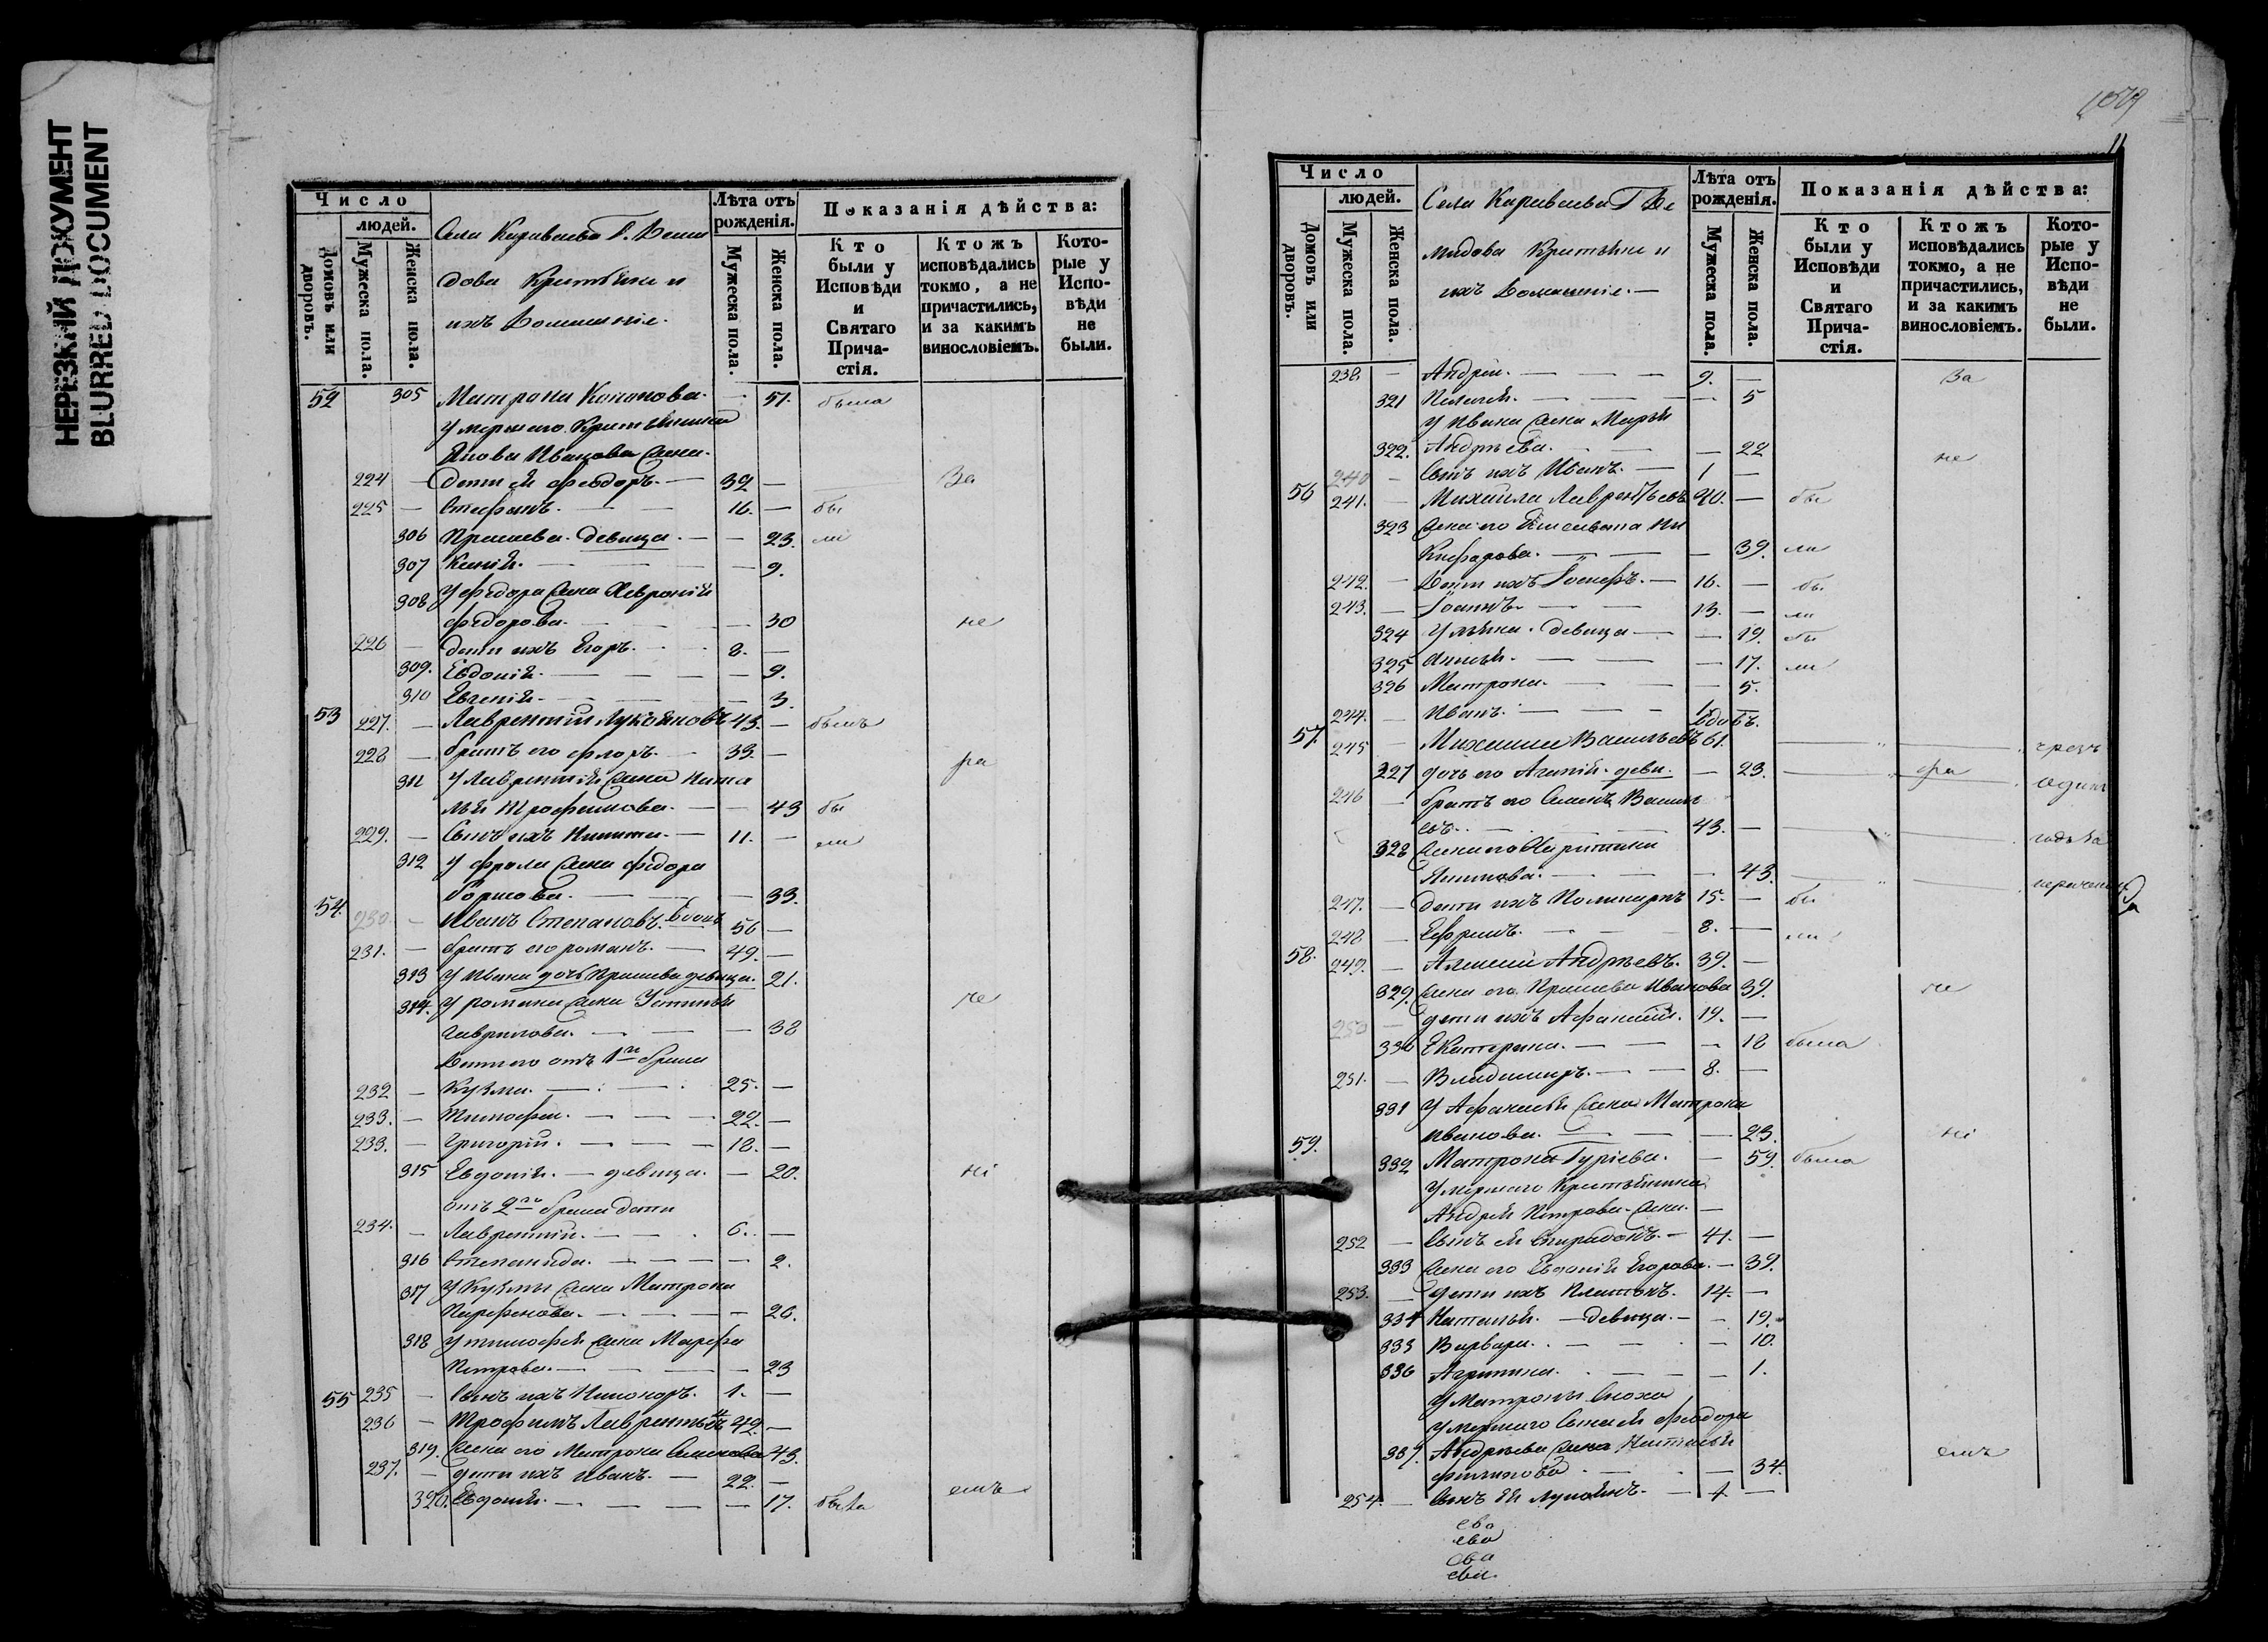 НЕРЕЗКИЙ ДОКУМЕНТ
BLURRED DOCUMENT
Число
людей.
Домовъ или дворовъ.
Мужеска пола.
Женска пола.
Села Караваева Г. Деми
дова Крестьяне и
ихъ Домашніе.
Лѣта отъ рожденія.
Мужеска пола.
Женска пола.
Показанія дѣйства:
Кто были у Исповѣди и Святаго Прича-стія.
Ктожъ исповѣдались токмо, а не причастились, и за какимъ винословіемъ.
Кото-рые у Испо-вѣди не были.
52 305 Матрона Кононова. — 51. была
Умершаго Крестьянина
Ивановa жена.
224 — дети ея Феодоръ. — 32 — За
225 — Стефанъ. — 16. — бы
306 Прасковья девица. — 23. ли
307 Ксенія. — 9.
308 У Федора жена Феvронія
Федорова. — 30 не
226 — дети ихъ Егоръ. 8. —
309. Евдокія. — 9.
310 Евгенія. — 3.
53 227. — Лаврентий Лукояновъ 43. — былъ
228 — братъ его Флоръ. 33. —
311 У Лаврентія жена Ната
лья Трофимова. — 43 бы
229. — Сынъ ихъ Никита. — 11. — ли
312 У Фрола жена Федора
Борисова. — 33.
54. 230. — Иванъ Степановъ. вдовъ 56 —
231. — братъ его Романъ. — 49. —
313 У Ивана дочь Прасковья девица. 21.
314. У Романа жена Устинья не
Гаврилова. — 38
Дети его отъ 1го брака
232 — Кузма. — 25. —
233. — Тимофей. — 22. —
233. — Григорій. — 18. —
315 Евдокія. — девица. — 20.
отъ 2го брака дети
234. — Лаврентій. — 6. —
316 Степанида. — 2.
317 У Кузмы жена Матрона
Парфенова. — 26.
318 У Тимофея жена Марфа
Петрова. — 23
55 235 — Сынъ ихъ Никоноръ. 1. —
236 — Трофимъ Лаврентьевъ 42. —
319. Жена его Матрона Семенова 43.
237. — дети ихъ Иванъ. — 22. —
320. Евдокія. — 17. была
Число
людей.
Домовъ или дворовъ.
Мужеска пола.
Женска пола.
Села Караваева Г Де
мидова Крестьяне и
ихъ Домашніе. —
Лѣта отъ рожденія.
Мужеска пола.
Женска пола.
Показанія дѣйства:
Кто были у Исповѣди и Святаго Прича-стія.
Ктожъ исповѣдались токмо, а не причастились, и за какимъ винословіемъ.
Кото-рые у Испо-вѣди не были.
238. — Андрей. — 9. — За
321 Пелагея. — 5
У Ивана жена Марья
322. Андреева. — 22
240 — Сынъ ихъ Иванъ. — 1 — не
56 241. — Михайла Лаврентьевъ 40. — бы
323 жена его Елисавета Ни
кифорова. — 39. ли
242. — Дети ихъ Іосифъ. — 16. — бы
243. — Іоаннъ. — 13. — ли
324 Ульяна. девица — 19. бы
325 Анисья. — 17. ли
326 Матрона. — 5.
244. — Иванъ. — 1.
57. 245 — Михаилъ Васильевъ 61. вдовъ. чрезъ
327 дочь его Агапія. деви. — 23. одинъ
246 — братъ его Семенъ Василь
евъ. 43. — годъ
328 жена его Харитина
43.
247. — дети ихъ Поликарпъ 15. — бы
248 — Ефремъ. 8. — ли
58. 249. — Алексей Андреевъ. 39. —
329. жена его Прасковья Иванова 39. не
250 — дети ихъ Афанасій. 19. —
330 Екатерина. — 18 была
251. — Владимиръ. — 8. —
331 У Афанасія жена Матрона
Иванова. — 23.
59. 332 Матрона Гурієва. — 59. была
Умершаго Крестьянина
Андрея Петрова жена. —
252 — Сынъ ея Спиридонъ. — 41. —
333 жена его Евдокія Егорова. — 39.
253. — дети ихъ Платонъ. 14. —
334 Наталья. — девица. — 19.
335 Варвара. — 10.
336 Агрипина. — 1.
У Матроны Сноха
Умершаго Сына ея Феодора
337. Андреева жена Наталья
Филипова — 34.
254 — Сынъ ея Лукоянъ. — 4 —
ева
ева
ова
ева